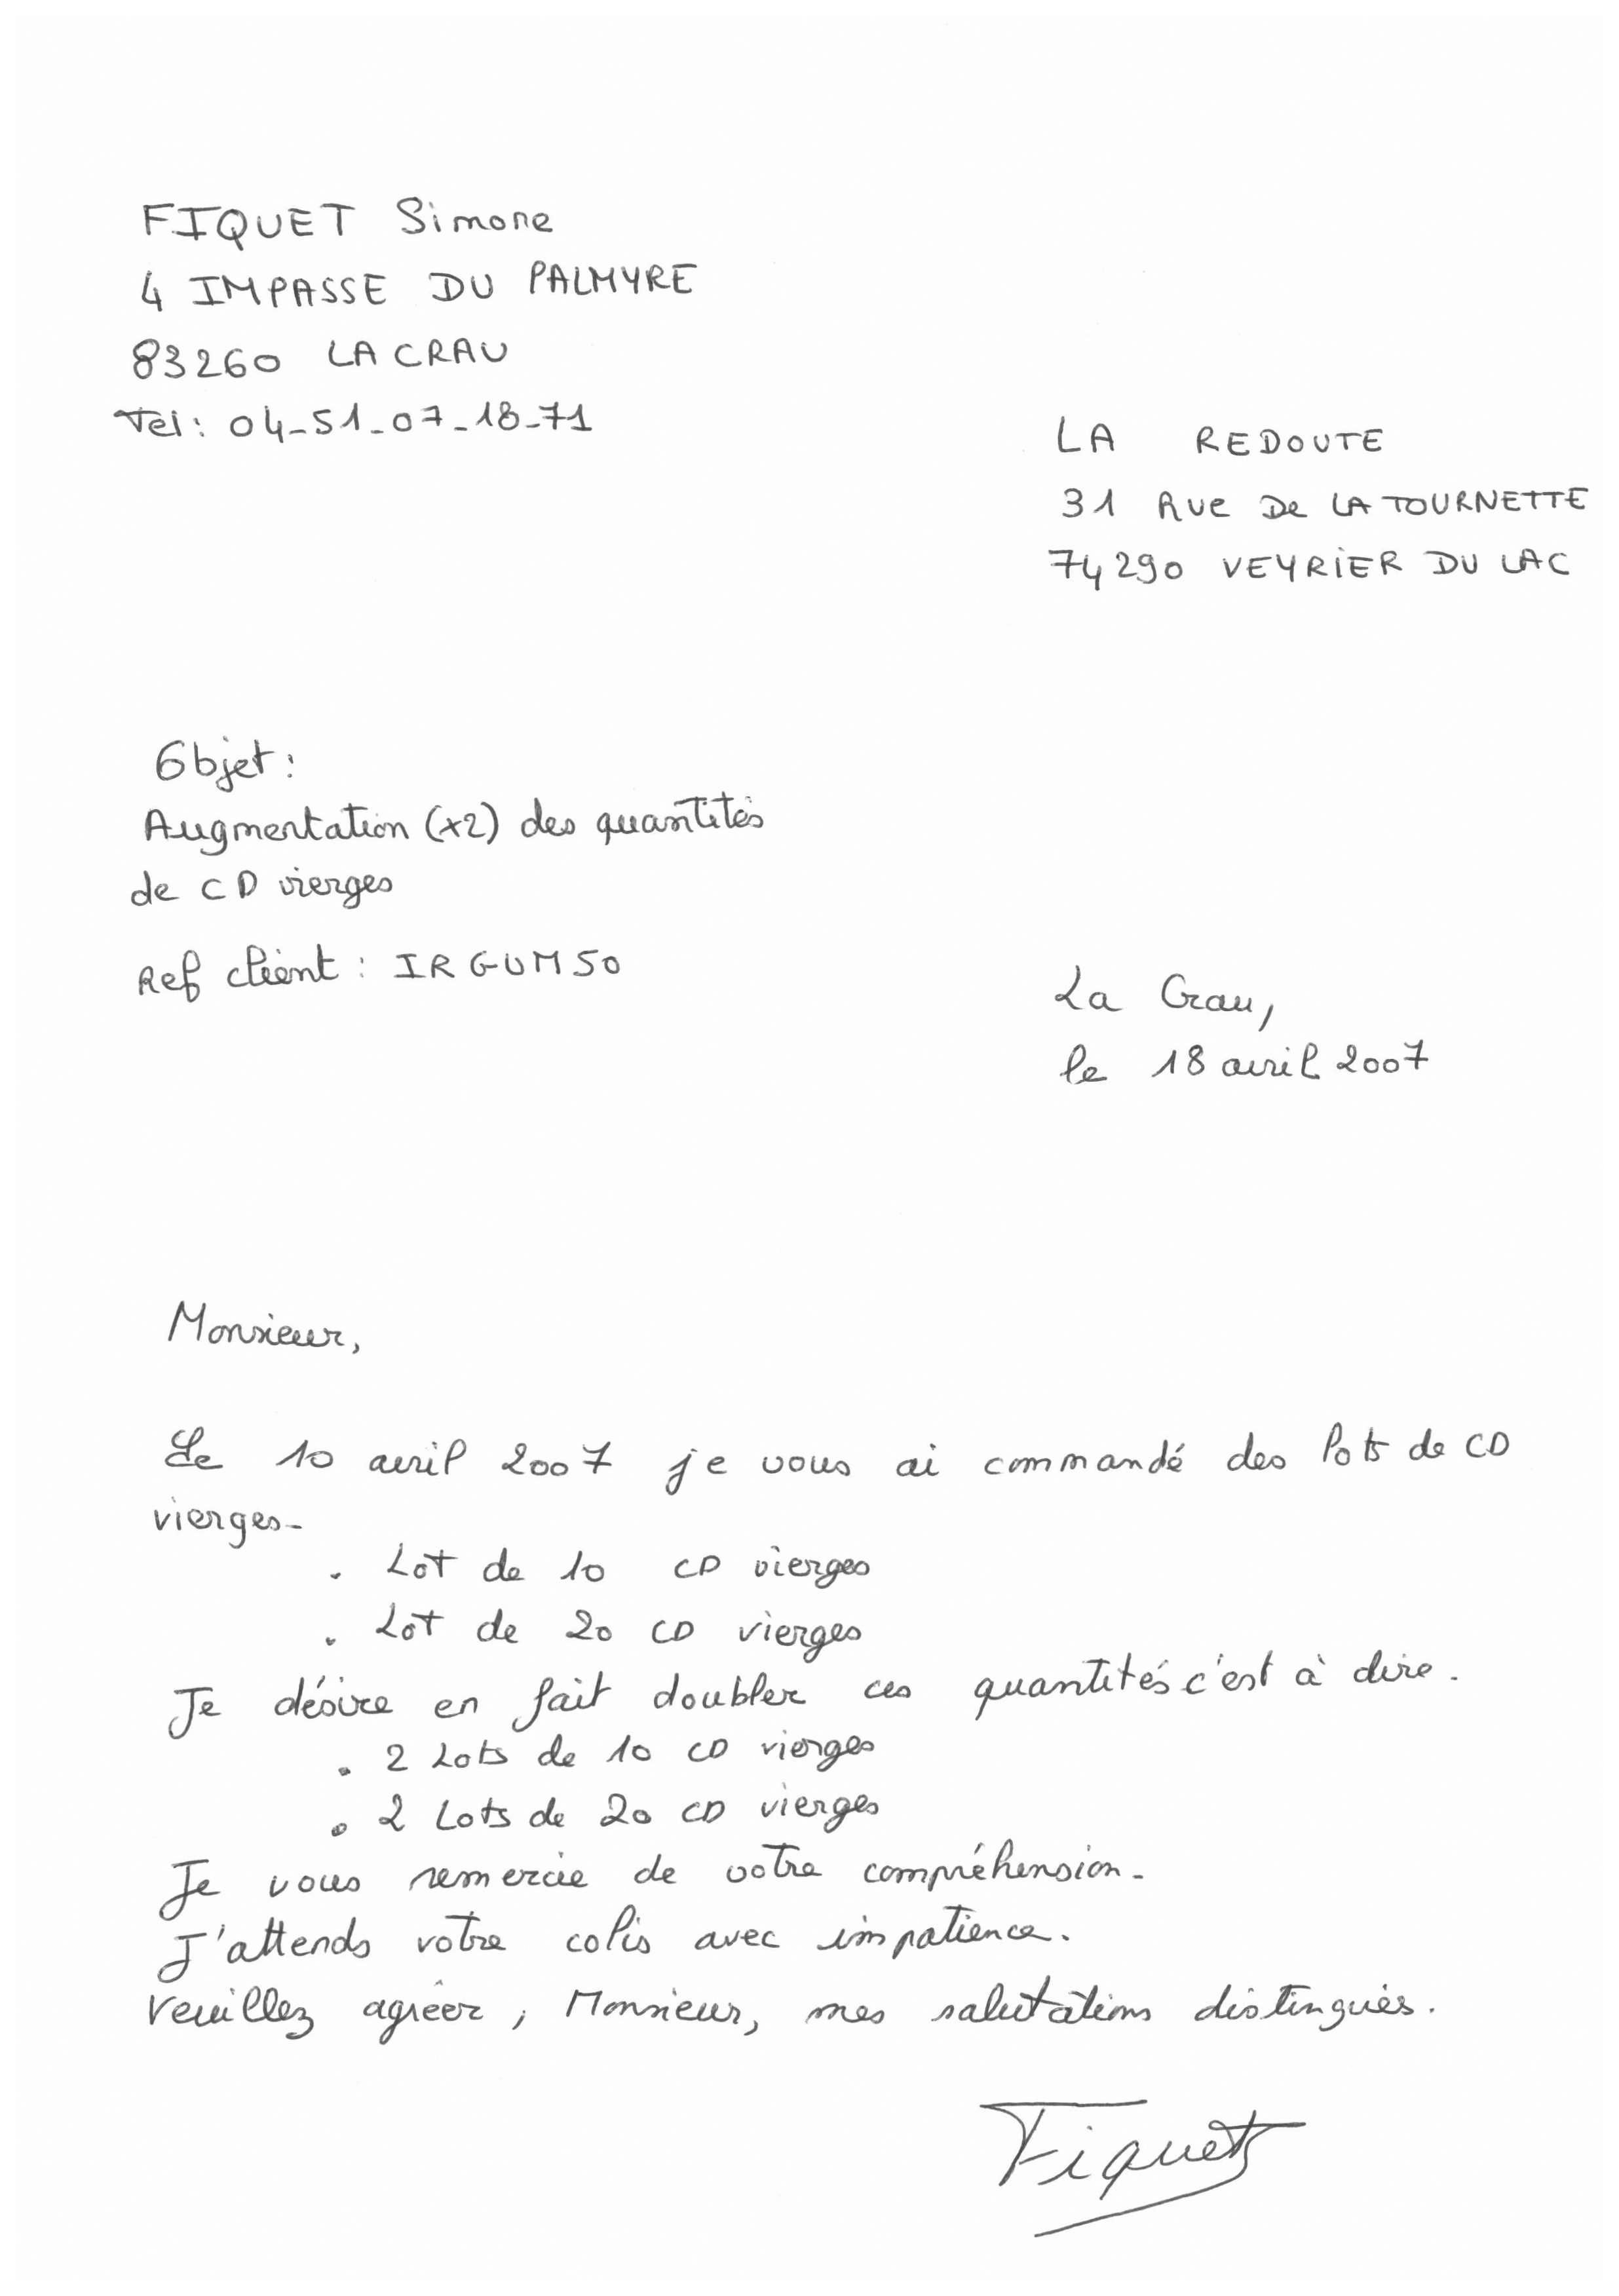 FIQUET Simone
4 IMPASSE DU PALMYRE
83260 LA CRAU
Tel: 04-51-07-18-71
LA REDOUTE
31 Rue De LA TOURNETTE
74290 VEYRIER DU LAC
Objet:
Augmentation (x2) des quantités
de CD vierges
Ref client: IRGUM50
La Crau,
le 18 avril 2007
Monsieur,
Le 10 avril 2007 je vous ai commandé des lots de CD
vierges-
. Lot de 10 CD vierges
. Lot de 20 CD vierges
Je désire en fait doubler ces quantités c'est à dire.
. 2 Lots de 10 CD vierges
. 2 Lots de 20 CD vierges
Je vous remercie de votre compréhension-
J'attends votre colis avec impatience.
Veuillez agréer, Monsieur, mes salutations distingués.
Fiquet